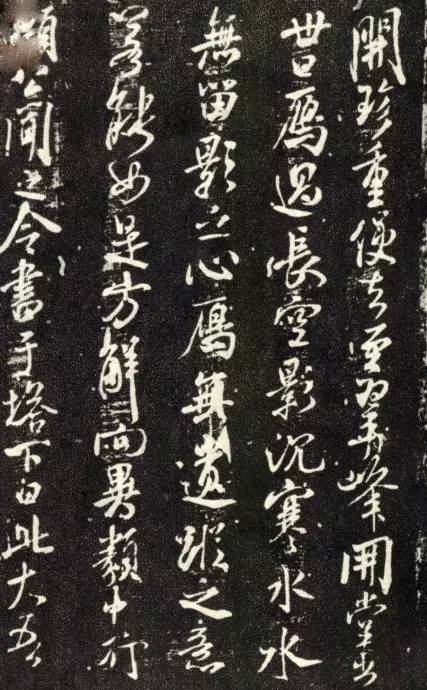 開珍重便去至翠峯開堂出
世曰鴈過長空影沉寒水水
無留影之心鴈無遺蹤之意
若能如是方解向異類中行
顯公聞之令書于塔下曰此大吾